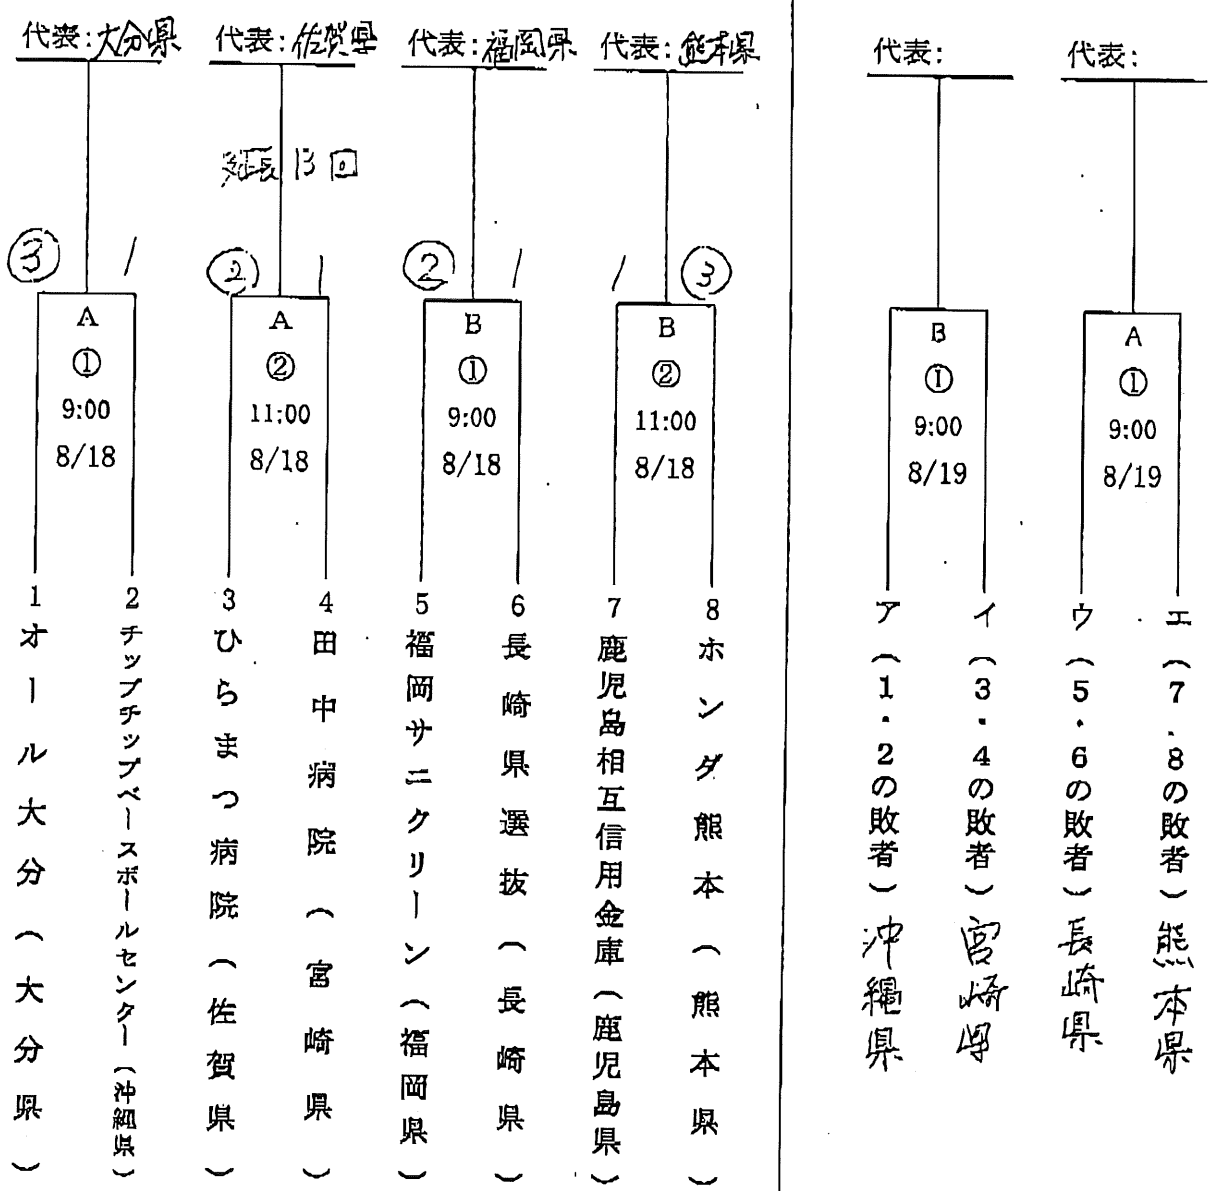 代表:大分県
代表:佐賀県
代表:福岡県
代表:熊本県
代表:
代表:
延長13回
③
1
②
1
②
1
1
③
A
①
9:00
8/18
A
②
11:00
8/18
B
①
9:00
8/18
B
②
11:00
8/18
B
①
9:00
8/19
A
①
9:00
8/19
1 オール大分(大分県)
2 チップチップベースボールセンター(沖縄県)
3 ひらまつ病院(佐賀県)
4 田中病院(宮崎県)
5 福岡サニクリーン(福岡県)
6 長崎県選抜(長崎県)
7 鹿児島相互信用金庫(鹿児島県)
8 ホンダ熊本(熊本県)
ア(1・2の敗者)沖縄県
イ(3・4の敗者)宮崎県
ウ(5・6の敗者)長崎県
エ(7・8の敗者)熊本県